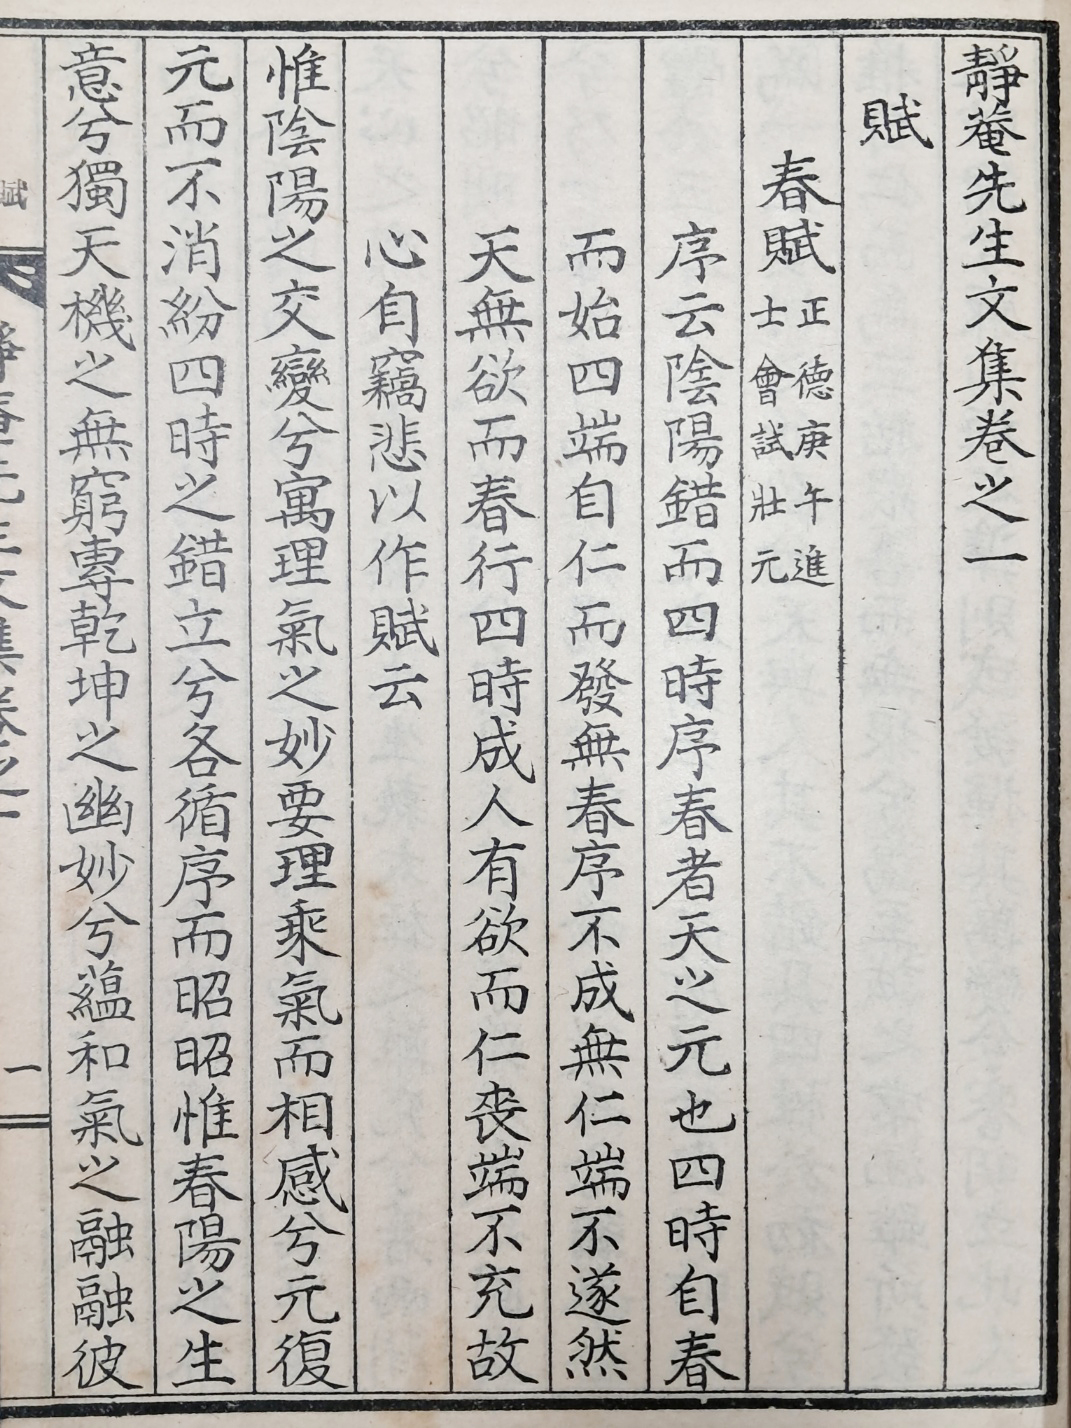 靜菴先生文集卷之一
賦
春賦 正德庚午進士會試壯元
序云陰陽錯而四時序春者天之元也四時自春
而始四端自仁而發無春序不成無仁端不遂然
天無欲而春行四時成人有欲而仁喪端不充故
心自竊悲以作賦云
惟陰陽之交變兮寓理氣之妙要理乘氣而相感兮元復
元而不消紛四時之錯立兮各循序而昭昭惟春陽之生
意兮獨天機之無窮專乾坤之幽妙兮蘊和氣之融融彼
賦
靜菴先生文集卷之一
一